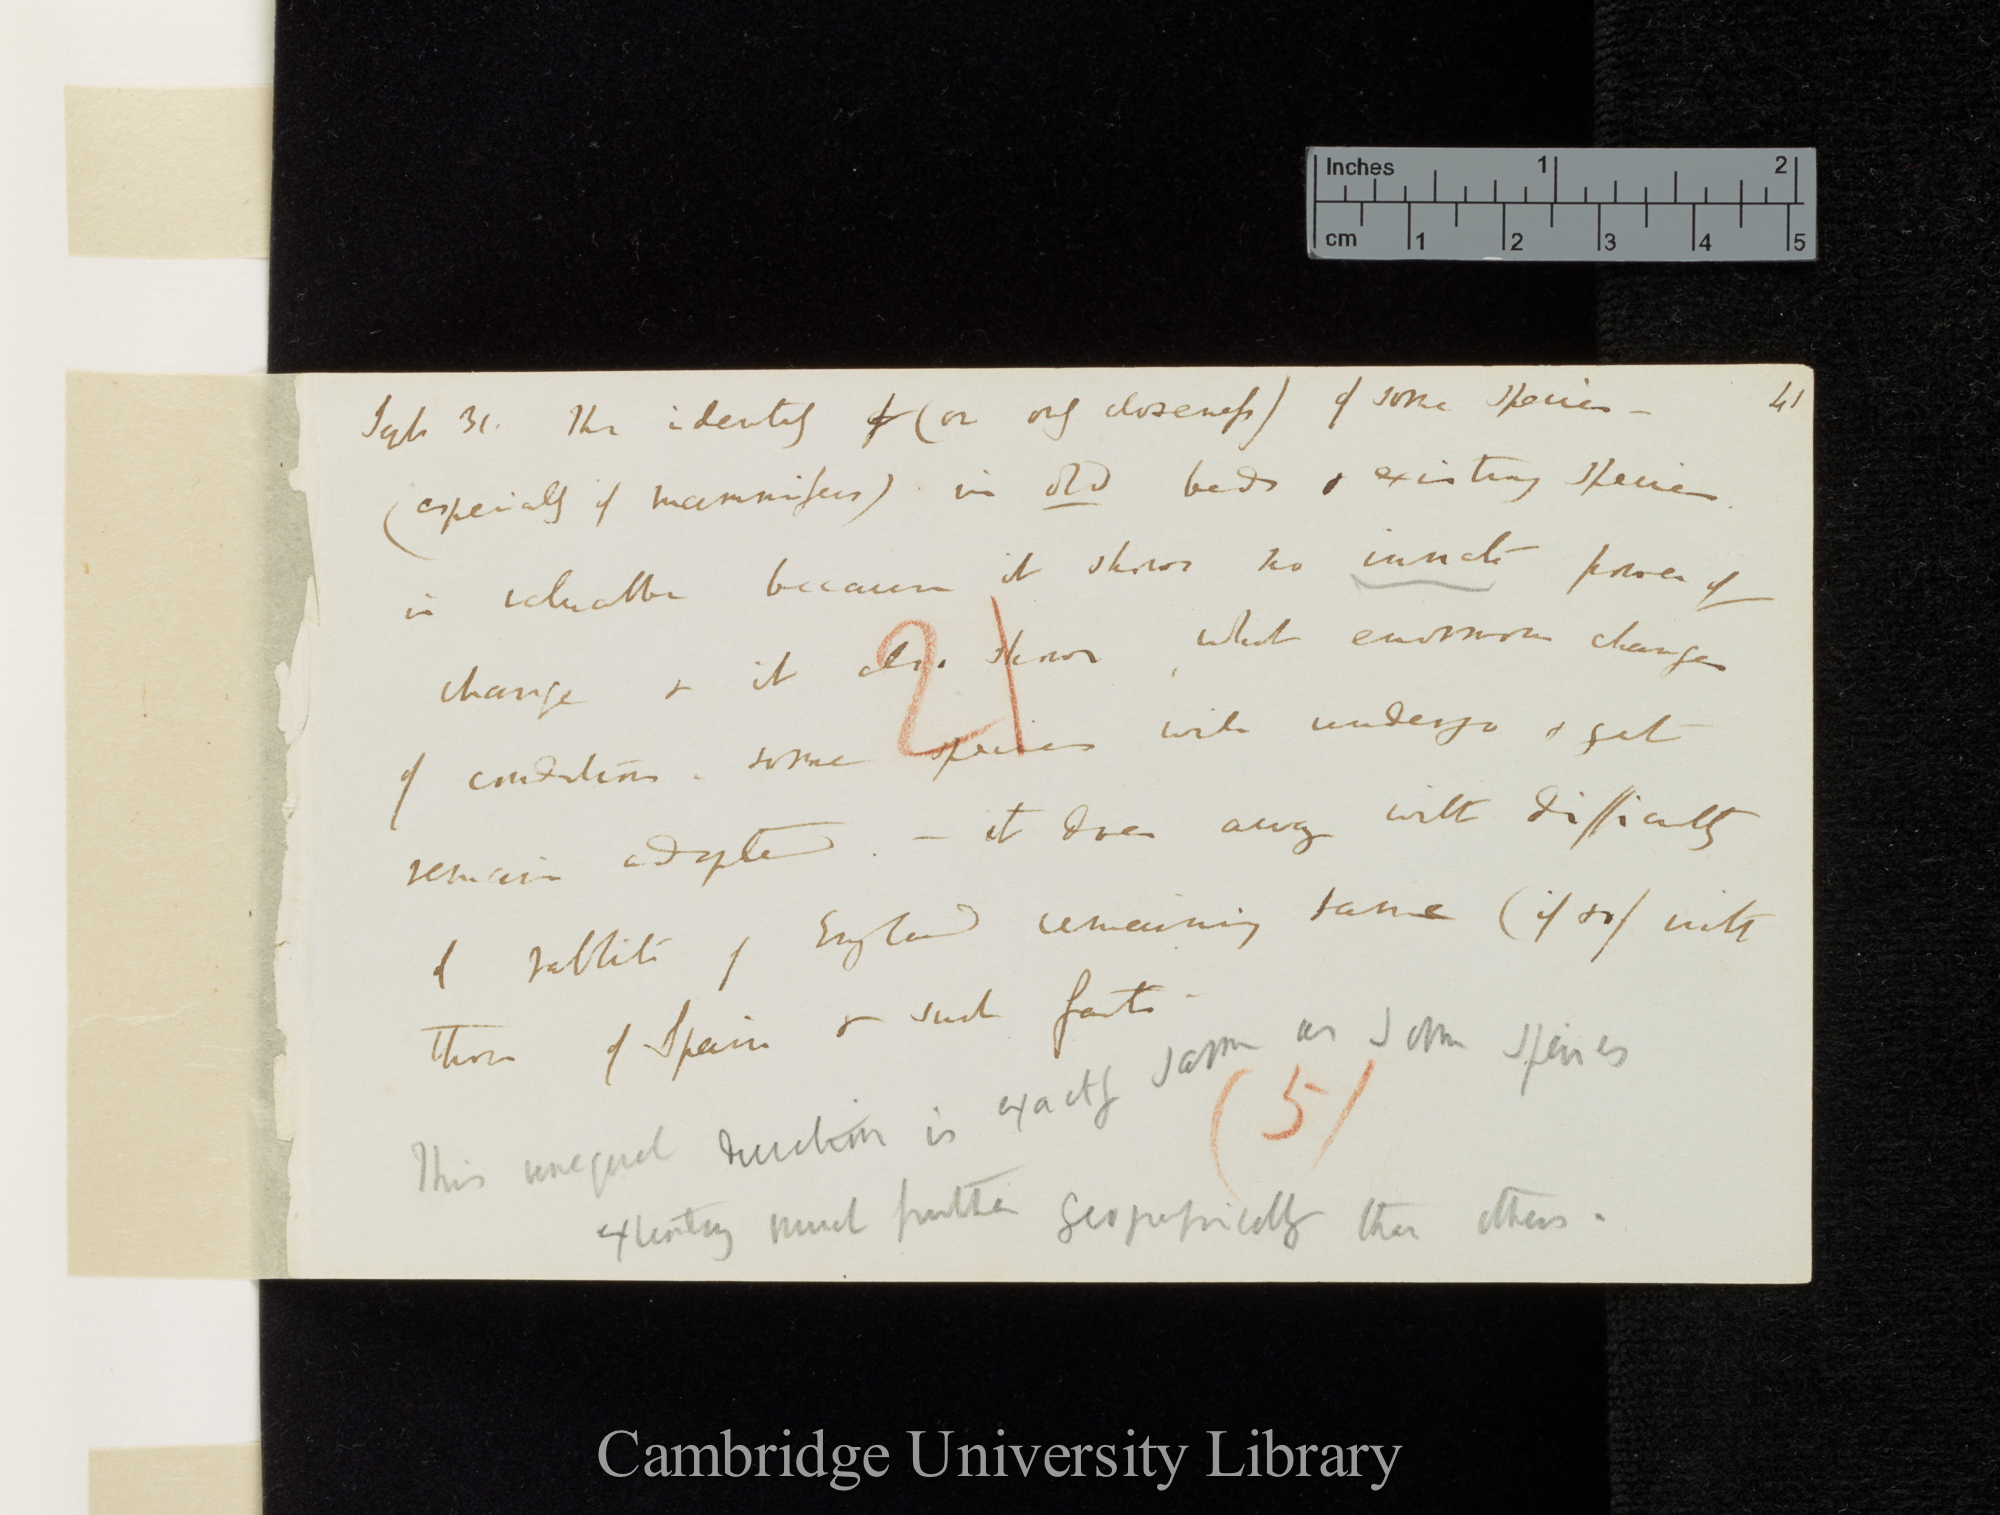 Inches 1 2
cm 1 2 3 4 5
41
Sept 31. The identity & (or only closeness) of some species –
(especially of mammifers) in old beds & existing species
is valuable because it shows no innate power of
change & it also shows what enormous changes
21
of conditions some species will undergo & yet
remain adapted. – it does away with difficulty
of rabbits of England remaining same (if so) with
those of Spain & such facts –
This unequal duration is exactly same as some species
(5)
extending much further geographically than others.
Cambridge University Library